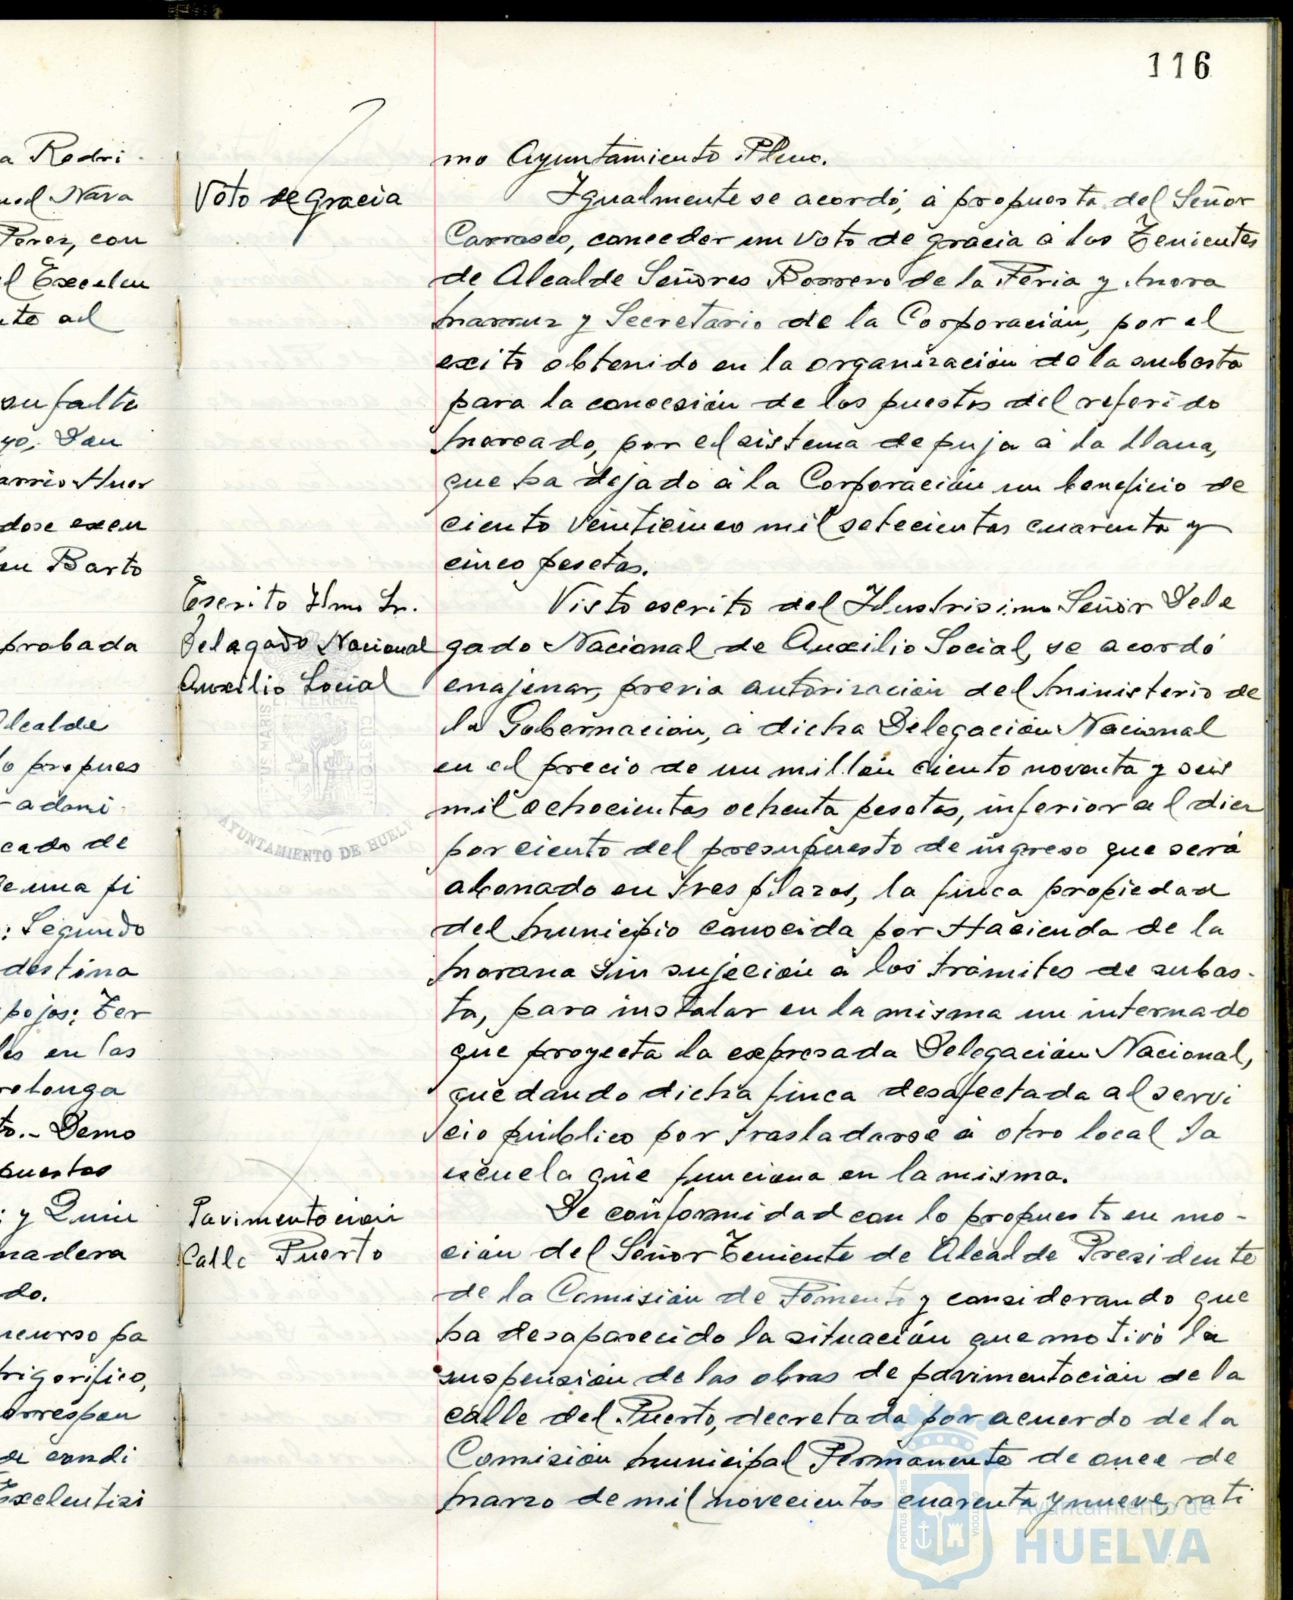 116
a Redri
uel Nava
Perez, con
l Excelen
nte al
su falta
yo, Don
arrio Huer
dose exen
en Barto
probada
Alcalde
lo propues
adoni
cado de
de una fi
: Segundo
destina
pojos; Ter
les en las
rolonga
to.- Demo
puestos
; y Quin
madera
do.
ncurso pa
frigorifico,
correspon
de condi
Excelentisi
mo Ayuntamiento Pleno.
Voto de gracia
Igualmente se acordó, á propuesta del Señor
Carrasco, conceder un voto de gracia á los Tenientes
de Alcalde Señores Borrero de la Feria y Mora
Narruz y Secretario de la Corporación, por el
exito obtenido en la organización de la subasta
para la concesión de los puestos del referido
Mercado, por el sistema de puja á la llana,
que ha dejado á la Corporación un beneficio de
ciento veinticinco mil setecientas cuarenta y
cinco pesetas.
Escrito Ilmo Sr.
Delegado Nacional
Auxilio Social
Visto escrito del Ilustrisimo Señor Dele
gado Nacional de Auxilio Social, se acordó
enajenar, previa autorización del Ministerio de
la Gobernación, á dicha Delegación Nacional
en el precio de un millón ciento noventa y seis
mil ochocientas ochenta pesetas, inferior al diez
por ciento del presupuesto de ingreso que será
abonado en tres plazos, la finca propiedad
del Municipio conocida por Hacienda de la
Morana sin sujeción á los trámites de subas-
ta, para instalar en la misma un internado
que proyecta la expresada Delegación Nacional,
quedando dicha finca desafectada al servi
cio público por trasladarse á otro local la
escuela que funciona en la misma.
Pavimentación
Calle Puerto
De conformidad con lo propuesto en mo-
ción del Señor Teniente de Alcalde Presidente
de la Comisión de Fomento y considerando que
ha desaparecido la situación que motivó la
suspensión de las obras de pavimentación de la
calle del Puerto, decretada por acuerdo de la
Comisión Municipal Permanente de once de
Marzo de mil novecientos cuarenta y nueve, rati
AYUNTAMIENTO DE HUELV
Ayuntamiento de
HUELVA